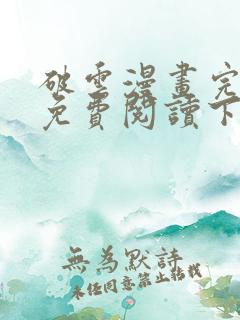 破雲漫畫完
免費閱讀下
無為默詩
未經同意禁止轉載